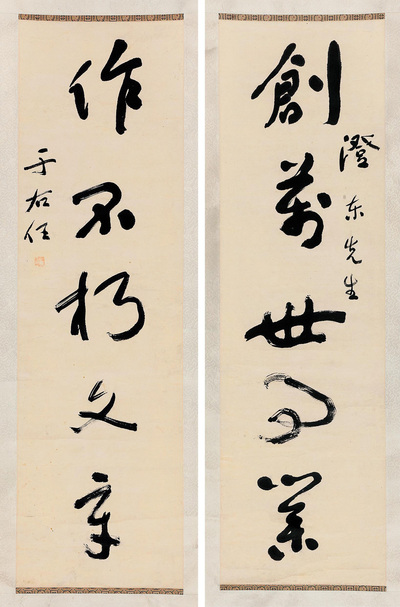 創萬世事業
澄東先生
作不朽文章
于右任